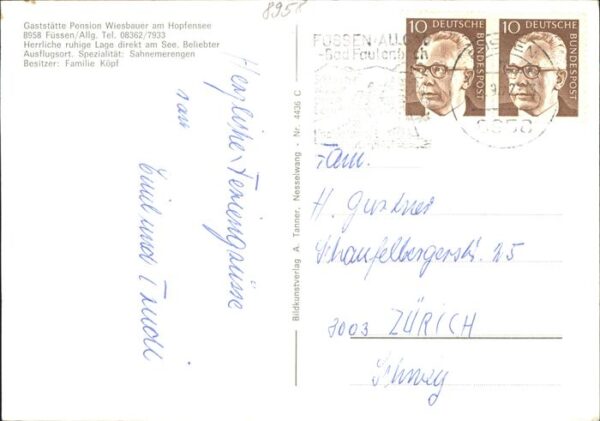 8958
Gaststätte Pension Wiesbauer am Hopfensee
8958 Füssen/Allg. Tel. 08362/7933
Herrliche ruhige Lage direkt am See. Beliebter
Ausflugsort. Spezialität: Sahnemerengen
Besitzer: Familie Köpf
Herzliche Feriengrüsse
von
Emil und Trudi
Bildkunstverlag A. Tanner, Nesselwang - Nr. 4436 C
10 DEUTSCHE BUNDESPOST
10 DEUTSCHE BUNDESPOST
FÜSSEN-ALLGÄU
-Bad Faulenbach
8958
Fam.
H. Gurtner
Schaufelbergerstr. 25
8003 ZÜRICH
Schweiz